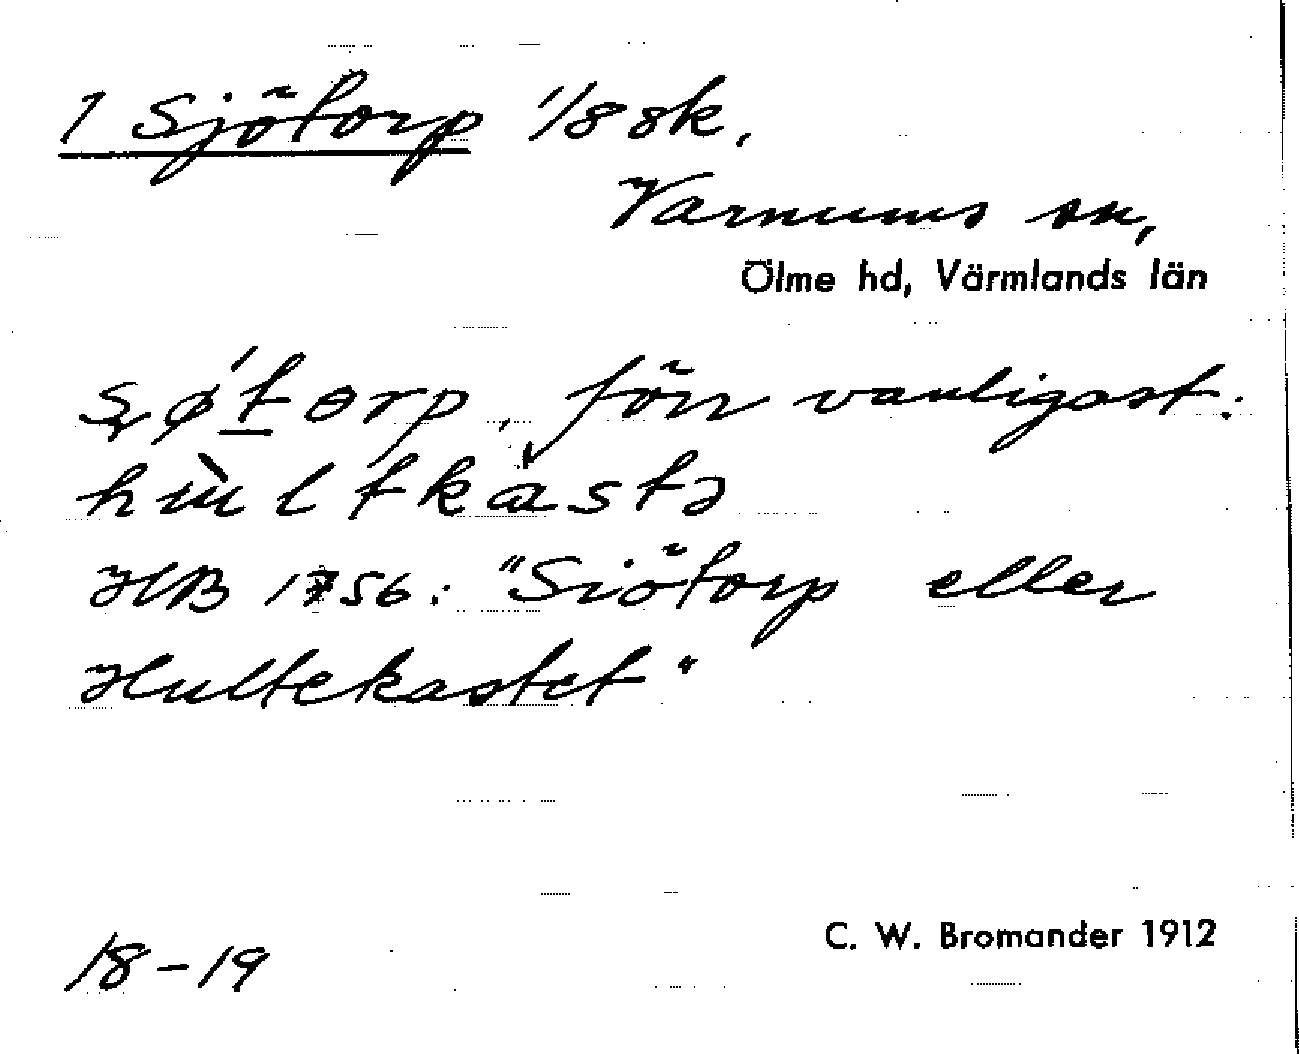 1 Sjötorp 1/8 sk.
Varnums sn,
Ölme hd, Värmlands län
ʂǿt̲orp, förr vanligast:
hùltkastə
HB 1756: "Siötorp eller
Hultekastet"
18-19
C. W. Bromander 1912